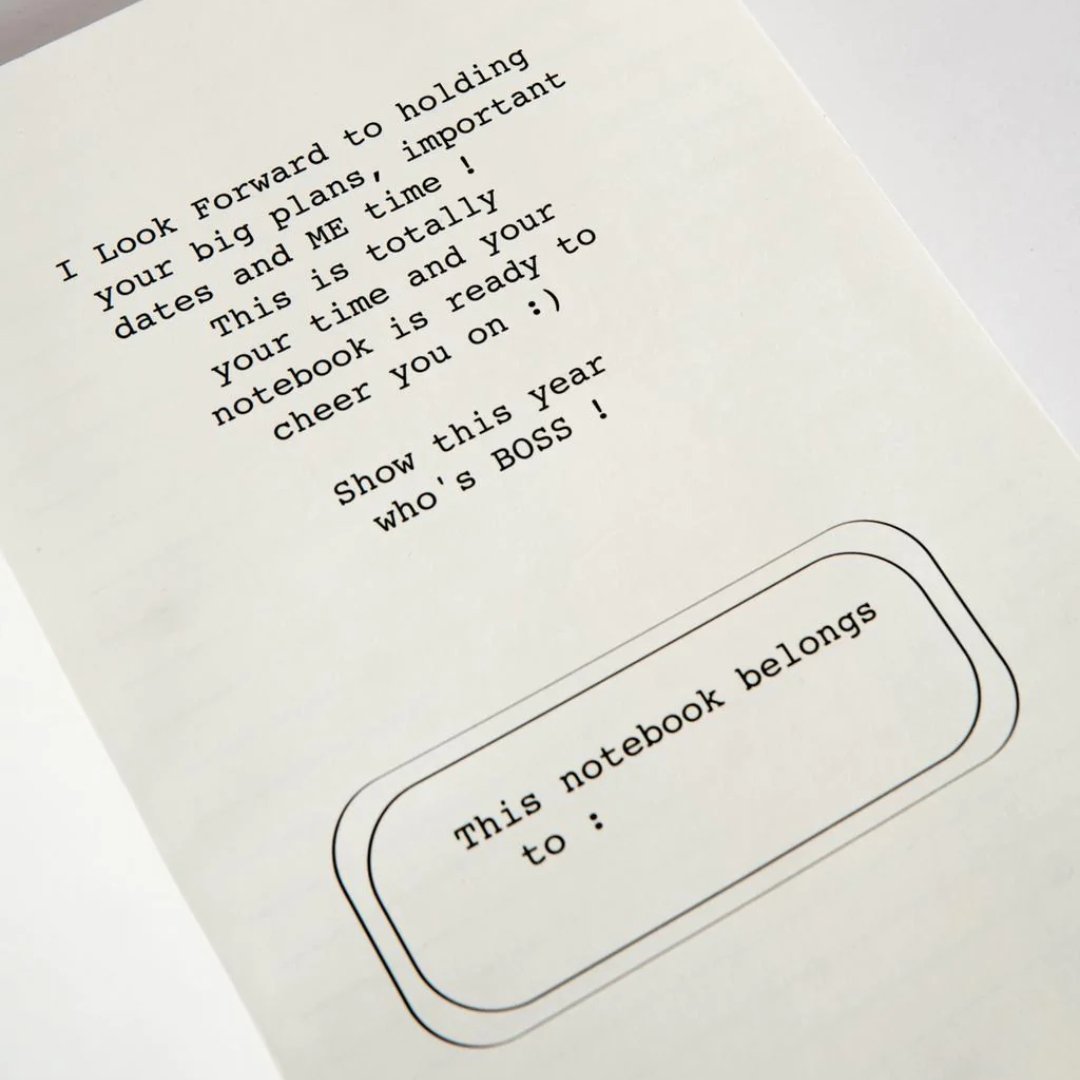 I Look Forward to holding
your big plans, important
dates and ME time !
This is totally
your time and your
notebook is ready to
cheer you on :)
Show this year
who's BOSS !
This notebook belongs
to :